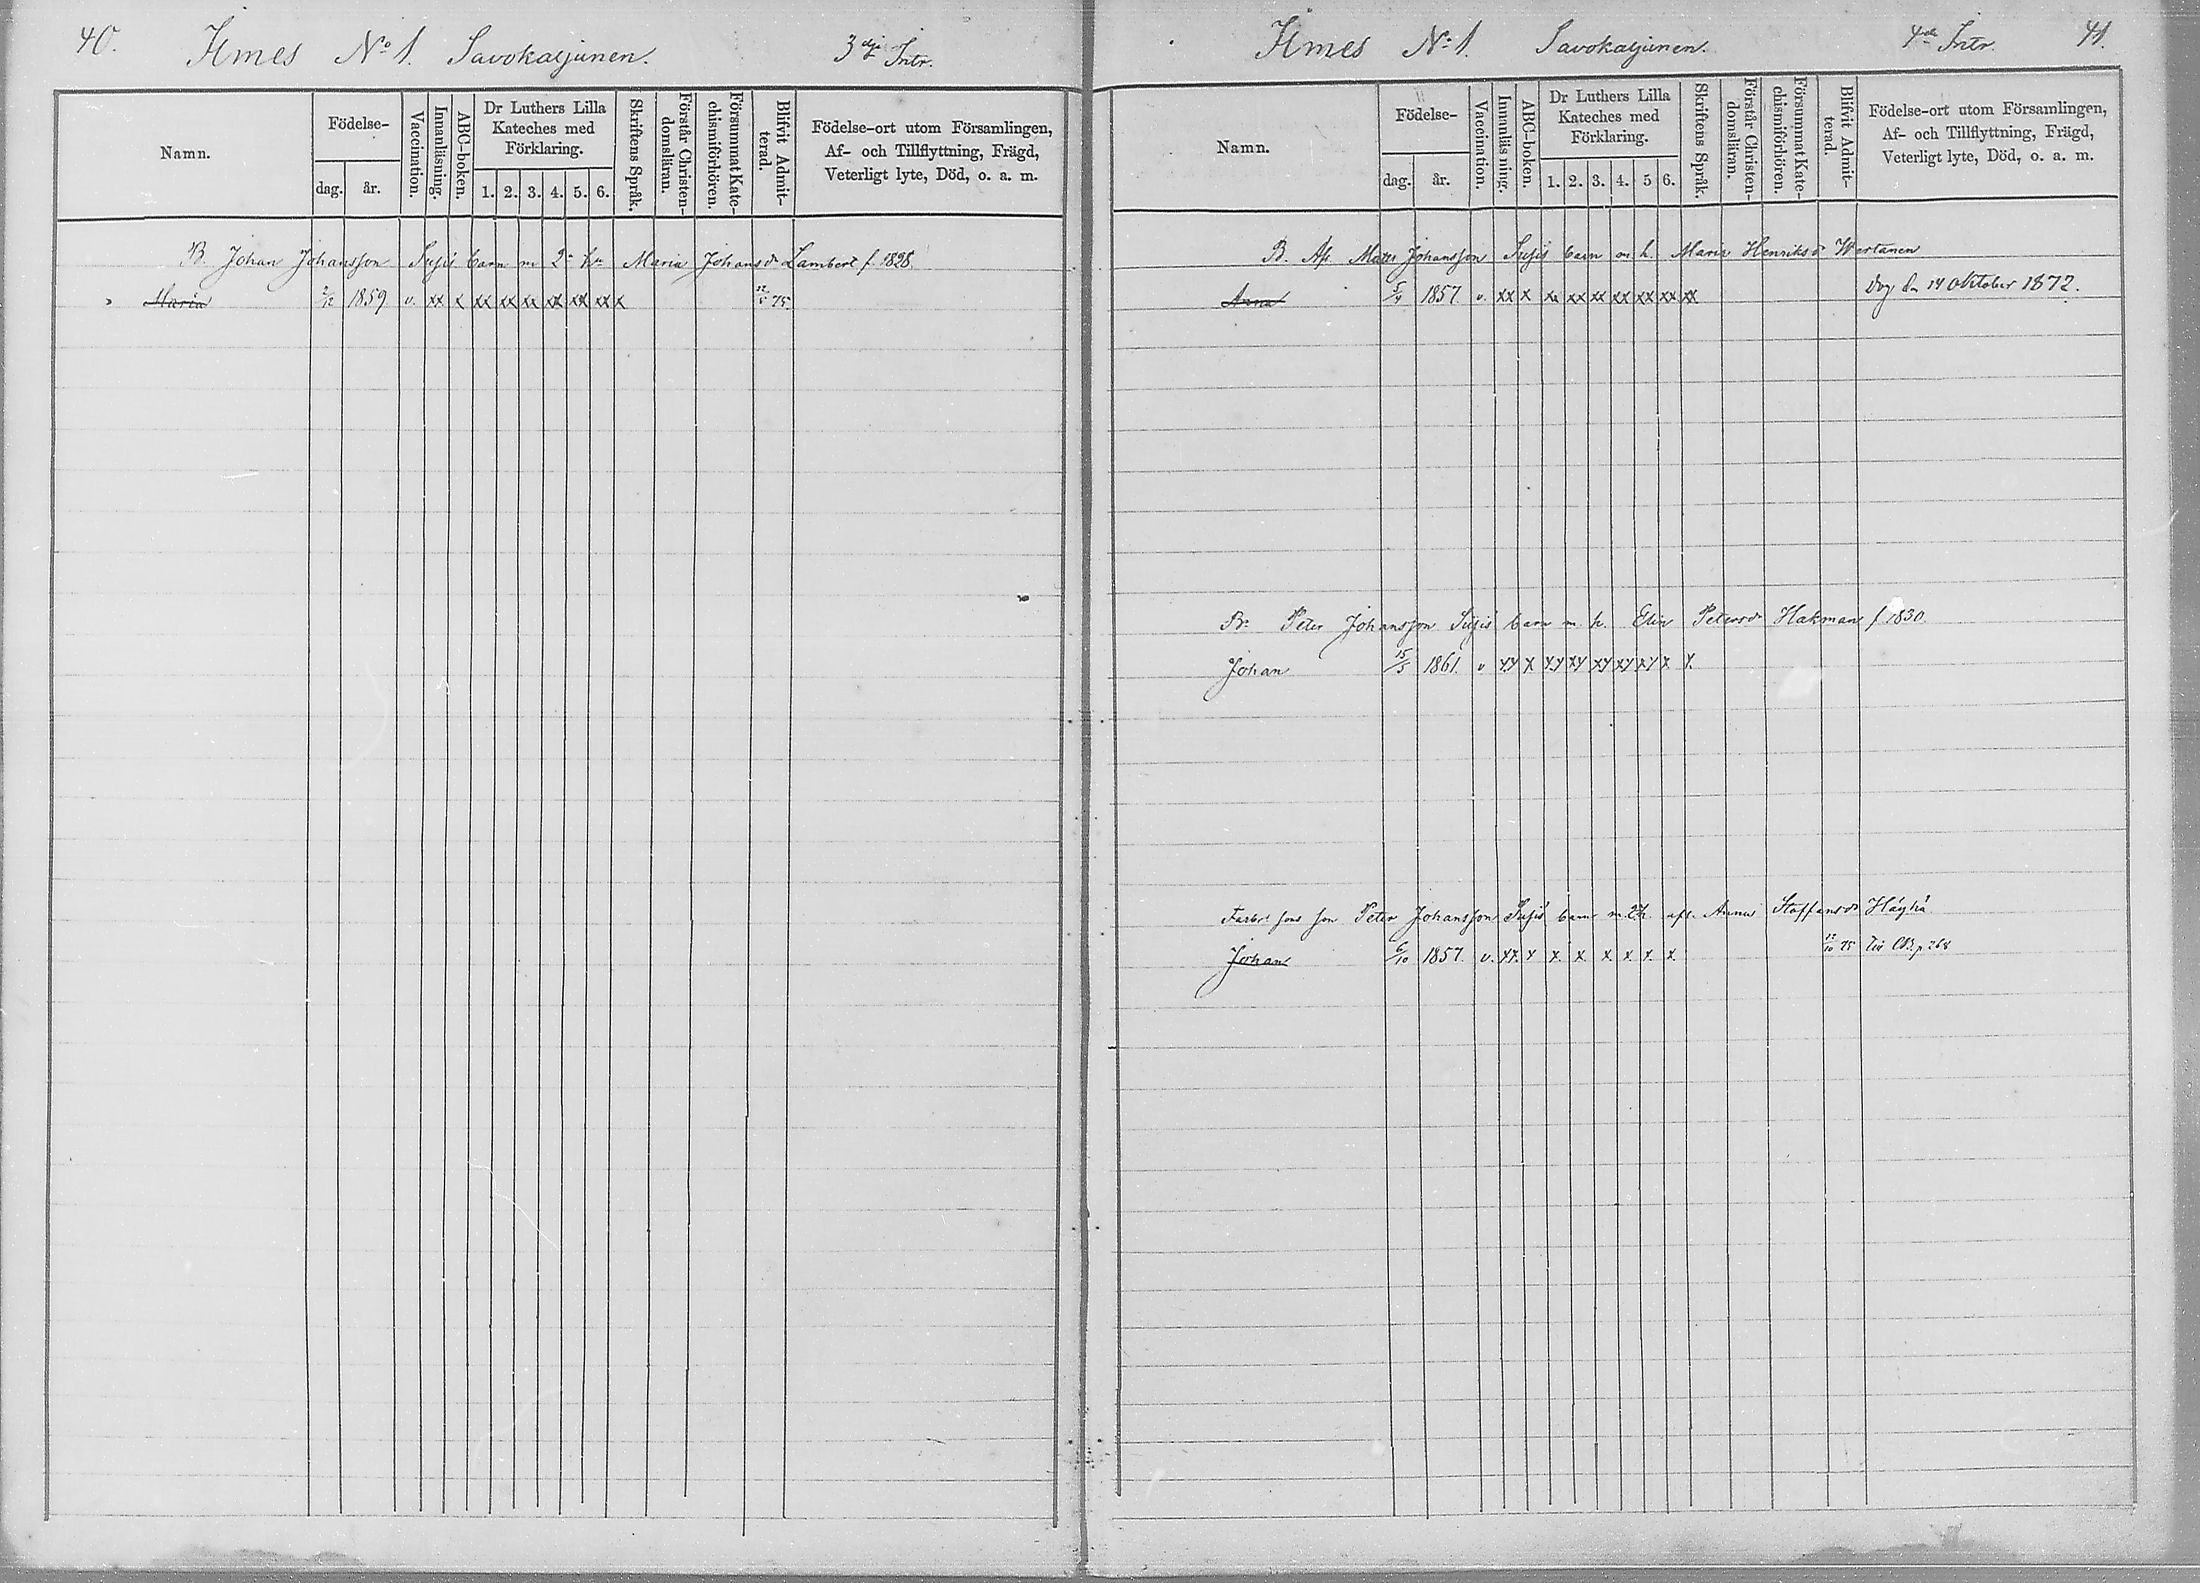 40. Ilmes No 1. Savokaijunen. 3dje Intr.
Namn.
Födelse-
dag.
år.
Vaccination.
Innanläsning.
ABC-boken.
Dr Luthers Lilla
Kateches med
Förklaring.
1. 2. 3. 4. 5. 6.
Skriftens Språk.
Förstår Christen-
domsläran.
Försummat Kate-
chismiförhören.
Blifvit Admit-
terad.
Födelse-ort utom Församlingen,
Af- och Tillflyttning, Frägd,
Veterligt lyte, Död, o. a. m.
B. Johan Johansson Susis barn m 2a hu Maria Johansdr Lambert f. 1828.
Maria 2/12 1859 v. xx x xx xx xx xx xx xx x 12/5 75.
Ilmes No 1. Savokaijunen. 4de Intr. 41.
Namn.
Födelse-
dag.
år.
Vaccination.
Innanläsning.
ABC-boken.
Dr Luthers Lilla
Kateches med
Förklaring.
1. 2. 3. 4. 5 6.
Skriftens Språk.
Förstår Christen-
domsläran.
Försummat Kate-
chismiförhören.
Blifvit Admit-
terad.
Födelse-ort utom Församlingen,
Af- och Tillflyttning, Frägd,
Veterligt lyte, Död, o. a. m.
B. Afl. Matts Johansson Susis barn m. h. Maria Henriksdr Wertanen
Anna 5/4 1857. v. xx x xx xx xx xx xx xx xx Dog den 14 Oktober 1872.
Br. Peter Johansson Susis barn m. h. Elin Petersdr Hakman f 1830.
Johan 15/5 1861. v xx x xx xx xx xx xx x x.
Farbr. sons son Peter Johansson Susis barn m. 2 h. afl. Anna Staffansdr Häyhä
Johan 6/10 1857. v. xx. x x. x. x. x. x. x. 12/10 75 Till CB. p 268